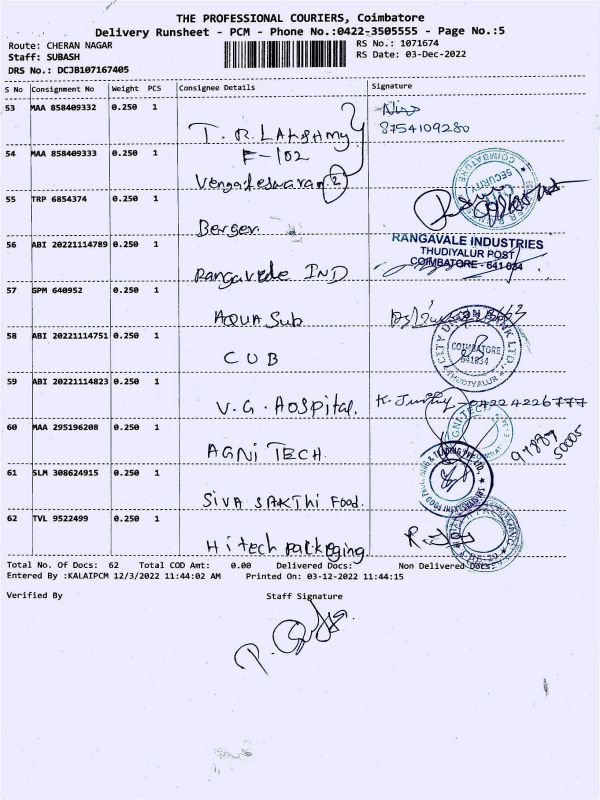 THE PROFESSIONAL COURIERS, Coimbatore
Delivery Runsheet - PCM - Phone No.:0422-3505555 - Page No.:5
Route: CHERAN NAGAR
RS No.: 1071674
Staff: SUBASH
RS Date: 03-Dec-2022
DRS No.: DCJB107167405
S No Consignment No Weight PCS Consignee Details Signature
53 MAA 858409332 0.250 1
T. R. LAKSHMY
8754109280
F-102
54 MAA 858409333 0.250 1
Vengateswaran 2
COIMBATORE
SECURITY
55 TRP 6854374 0.250 1
Berger
56 ABI 20221114789 0.250 1
RANGAVALE INDUSTRIES
THUDIYALUR POST
COIMBATORE - 641 034
Rangavale IND
57 GPM 640952 0.250 1
AQUA Sub
58 ABI 20221114751 0.250 1
CITY UNION BANK LTD.
COIMBATORE
641034
THUDIYALUR
CUB
59 ABI 20221114823 0.250 1
V. G. Hospital.
04224226777
60 MAA 295196208 0.250 1
AGNI TECH
AGNI TECH.
97889
50005
61 SLM 308624915 0.250 1
Siva SAKthi Food.
62 TVL 9522499 0.250 1
Hitech packaging
Total No. Of Docs: 62 Total COD Amt: 0.00 Delivered Docs: Non Delivered Docs:
Entered By :KALAIPCM 12/3/2022 11:44:02 AM Printed On: 03-12-2022 11:44:15
Verified By Staff Signature